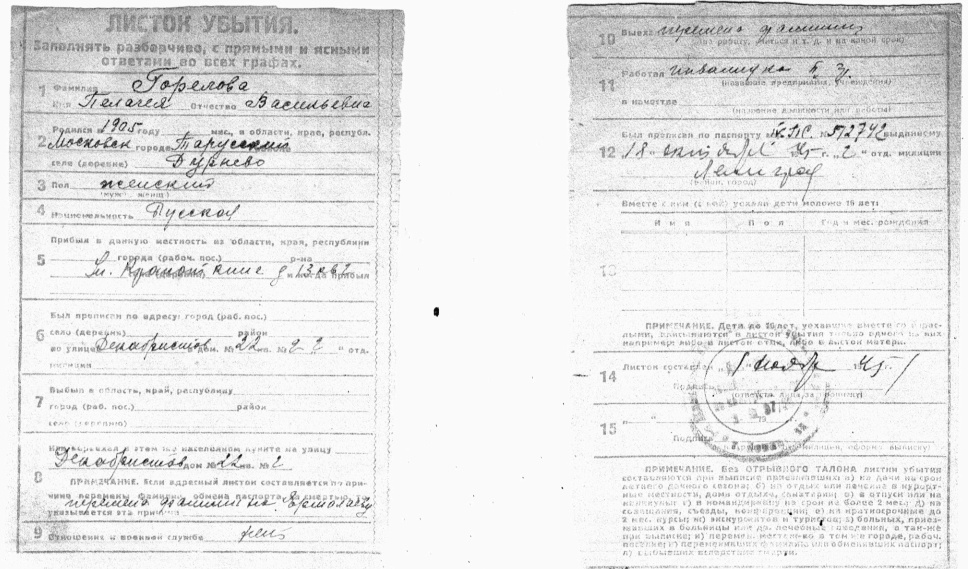 ЛИСТОК УБЫТИЯ.
Заполнять разборчиво, с прямыми и ясными
ответами во всех графах.
1 Фамилия Горелова
Имя Пелагея Отчество Васильевна
Родился в 1905 году мес., в области, крае, республ.
2 Московск городе Тарусский
селе (деревне) Дурнево
3 Пол женский
(мужч. женщ.)
4 Национальность Русская
Прибыл в данную местность из области, края, республики
города (рабоч. пос.) р-на
5 д 13 кв 2 и когда прибыл
Был прописан по адресу: город (раб. пос.)
6 село (деревня) район
по улице Декабристов дом. № 22 кв. № 2 2 " отд.
милиции
Выбыл в область, край, республику
7 город (раб. пос.) район
село (деревню)
Или переехал в этом же населенном пункте на улицу
Декабристов дом № 22 кв. № 2
8 ПРИМЕЧАНИЕ. Если адресный листок составляется по при-
чине перемены фамилии, обмена паспорта, за смертью,
перемена фамилии на Ермолаеву
указывается эта причина
9 Отношение к военной службе нет
10 Выехал перемена фамилии
(на работу, учиться и т. д. и на какой срок)
Работал инвалидка II гр.
11 (название предприятия, учреждения)
в качестве
(название должности или работы)
Был прописан по паспорту № 572742 выданному
12 18 " октября 45 г. " 2 " отд. милиции
Ленинград
Вместе с ним (с ней) уехали дети моложе 16 лет:
Имя Пол Год и мес. рождения
13
ПРИМЕЧАНИЕ. Дети до 16 лет, уехавшие вместе со взрос-
лыми, вписываются в листок убытия только одного из них
например либо в листок отца, либо в листок матери.
14 Листок составлен " 1 " ноябр 45 г
Подпись
15 "
Подпись
ПРИМЕЧАНИЕ. Без ОТРЫВНОГО ТАЛОНА листки убытия
составляются при выписке приезжавших: а) на дачи на срок
летнего дачного сезона; б) на отдых или лечение в курорт-
ные местности, дома отдыха, санатории; в) в отпуск или на
каникулы; г) в командировку на срок не более 2 мес.; д) на
совещания, съезды, конференции; е) на краткосрочные до
2 мес. курсы; ж) экскурсантов и туристов; з) больных, приез-
жавших в больницы или др. лечебные заведения, а так-же
при выписке: и) перемен. местожит-во в том же городе, рабоч.
поселке; к) переменивших фамилию или обменявших паспорт;
л) выбывших вследствие смерти.